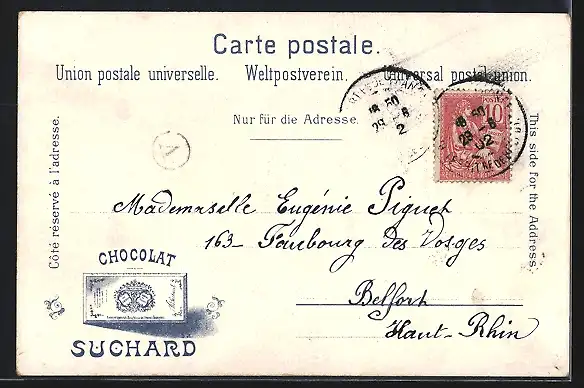 Carte postale.
Union postale universelle. Weltpostverein. Universal postal union.
Nur für die Adresse.
Côté réservé à l'adresse.
This side for the Address.
POSTES 10
18 50
29 - 8
02
18 50
29 - 8
2
A
Mademoiselle Eugénie Piguet
163 - Faubourg des Vosges
Belfort
Haut-Rhin
CHOCOLAT
SUCHARD